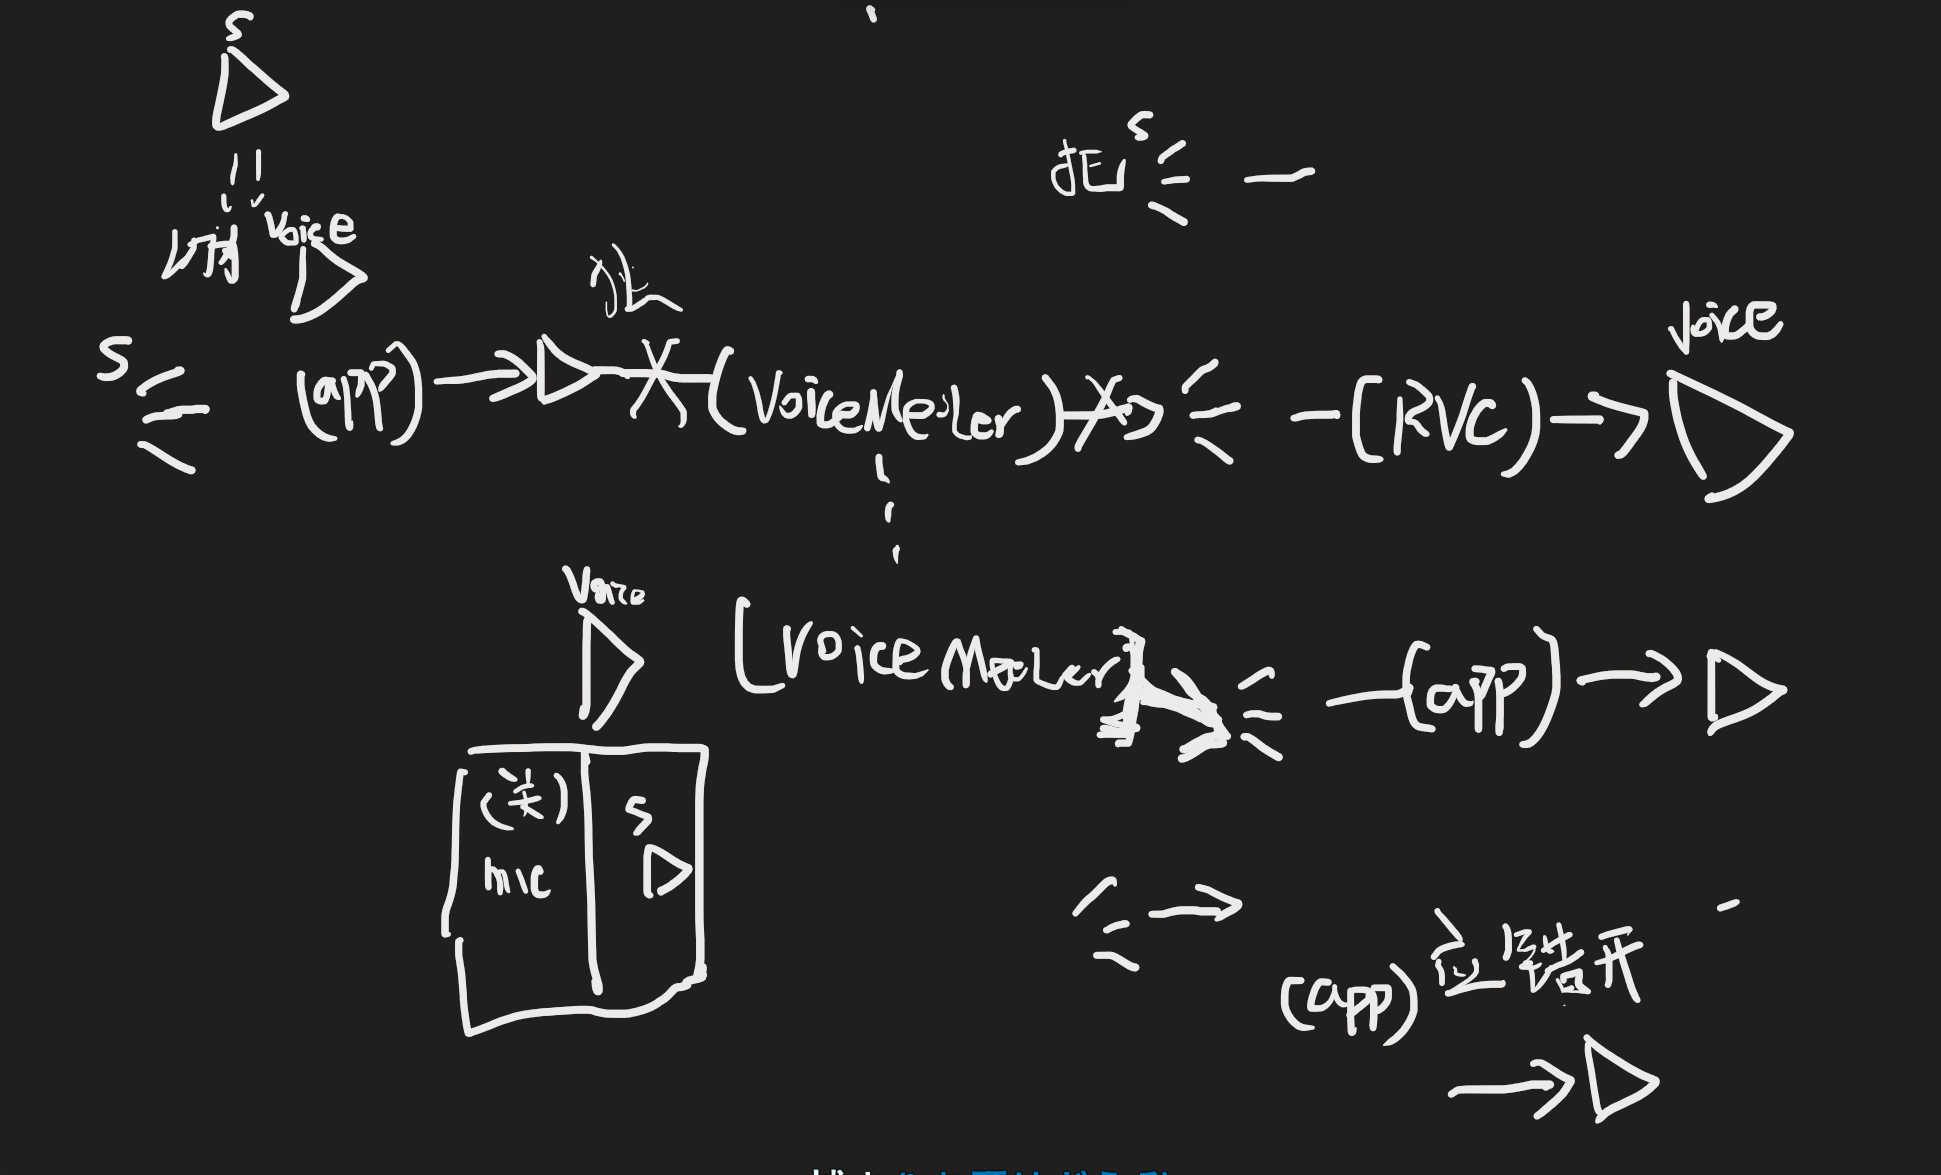 S
S
voice
voice
S
(app)
(VoiceMeeter)
(RVC)
voice
(VoiceMeeter)
(app)
(关)
mic
S
(app) 应错开